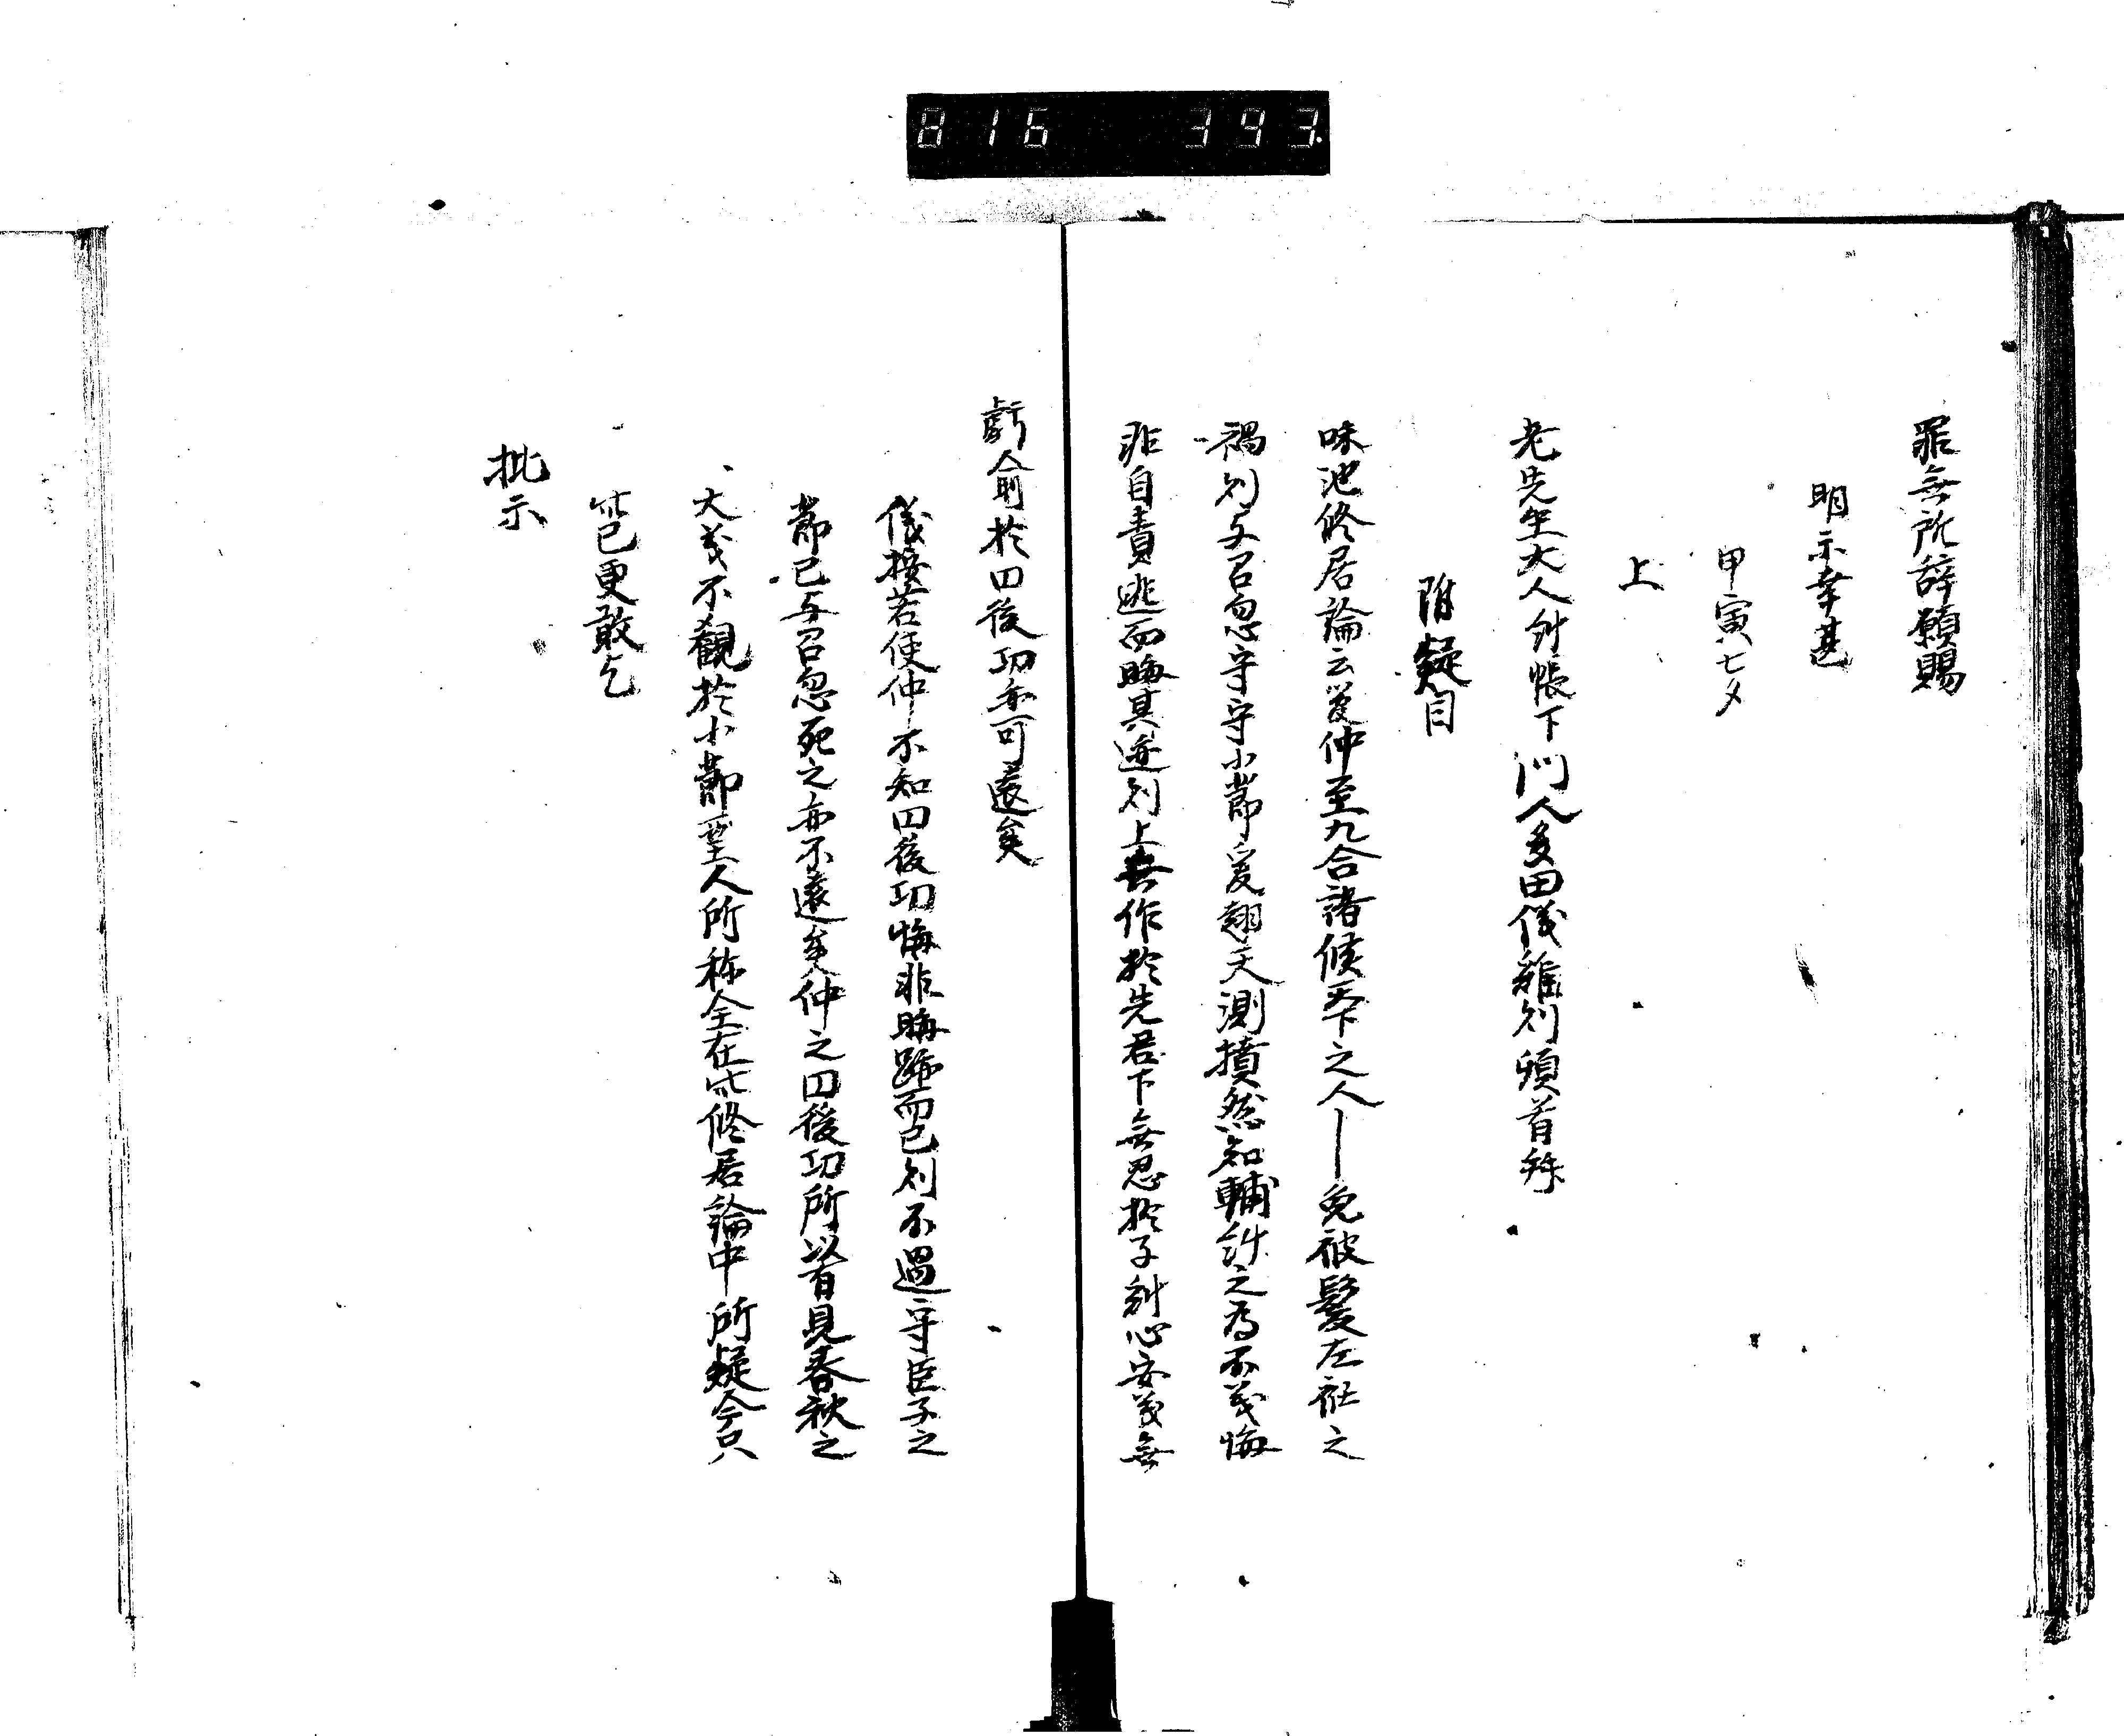 816 393.
罪無所辞願賜
明示幸甚
甲寅七夕
上
老先生大人 帳下 门人多田儀 頓首拜
附疑目
味池修居論云管仲至九合諸侯天下之人免被髮左衽之
禍則与召忽守守小節爰翅天淵 然知輔糾之為不義悔
非自責逃而晦其迹則上無怍於先君下無忍於子糾心安義無
虧俞於囚後功亦可還矣
儀按若使仲不知囚後功悔非晦跡而已則不過守臣子之
節已与召忽死之亦不遠矣仲之囚後功所以有見春秋之
大義不観於小節聖人所称全在此修居論中所疑今只
此已更敢乞
批示